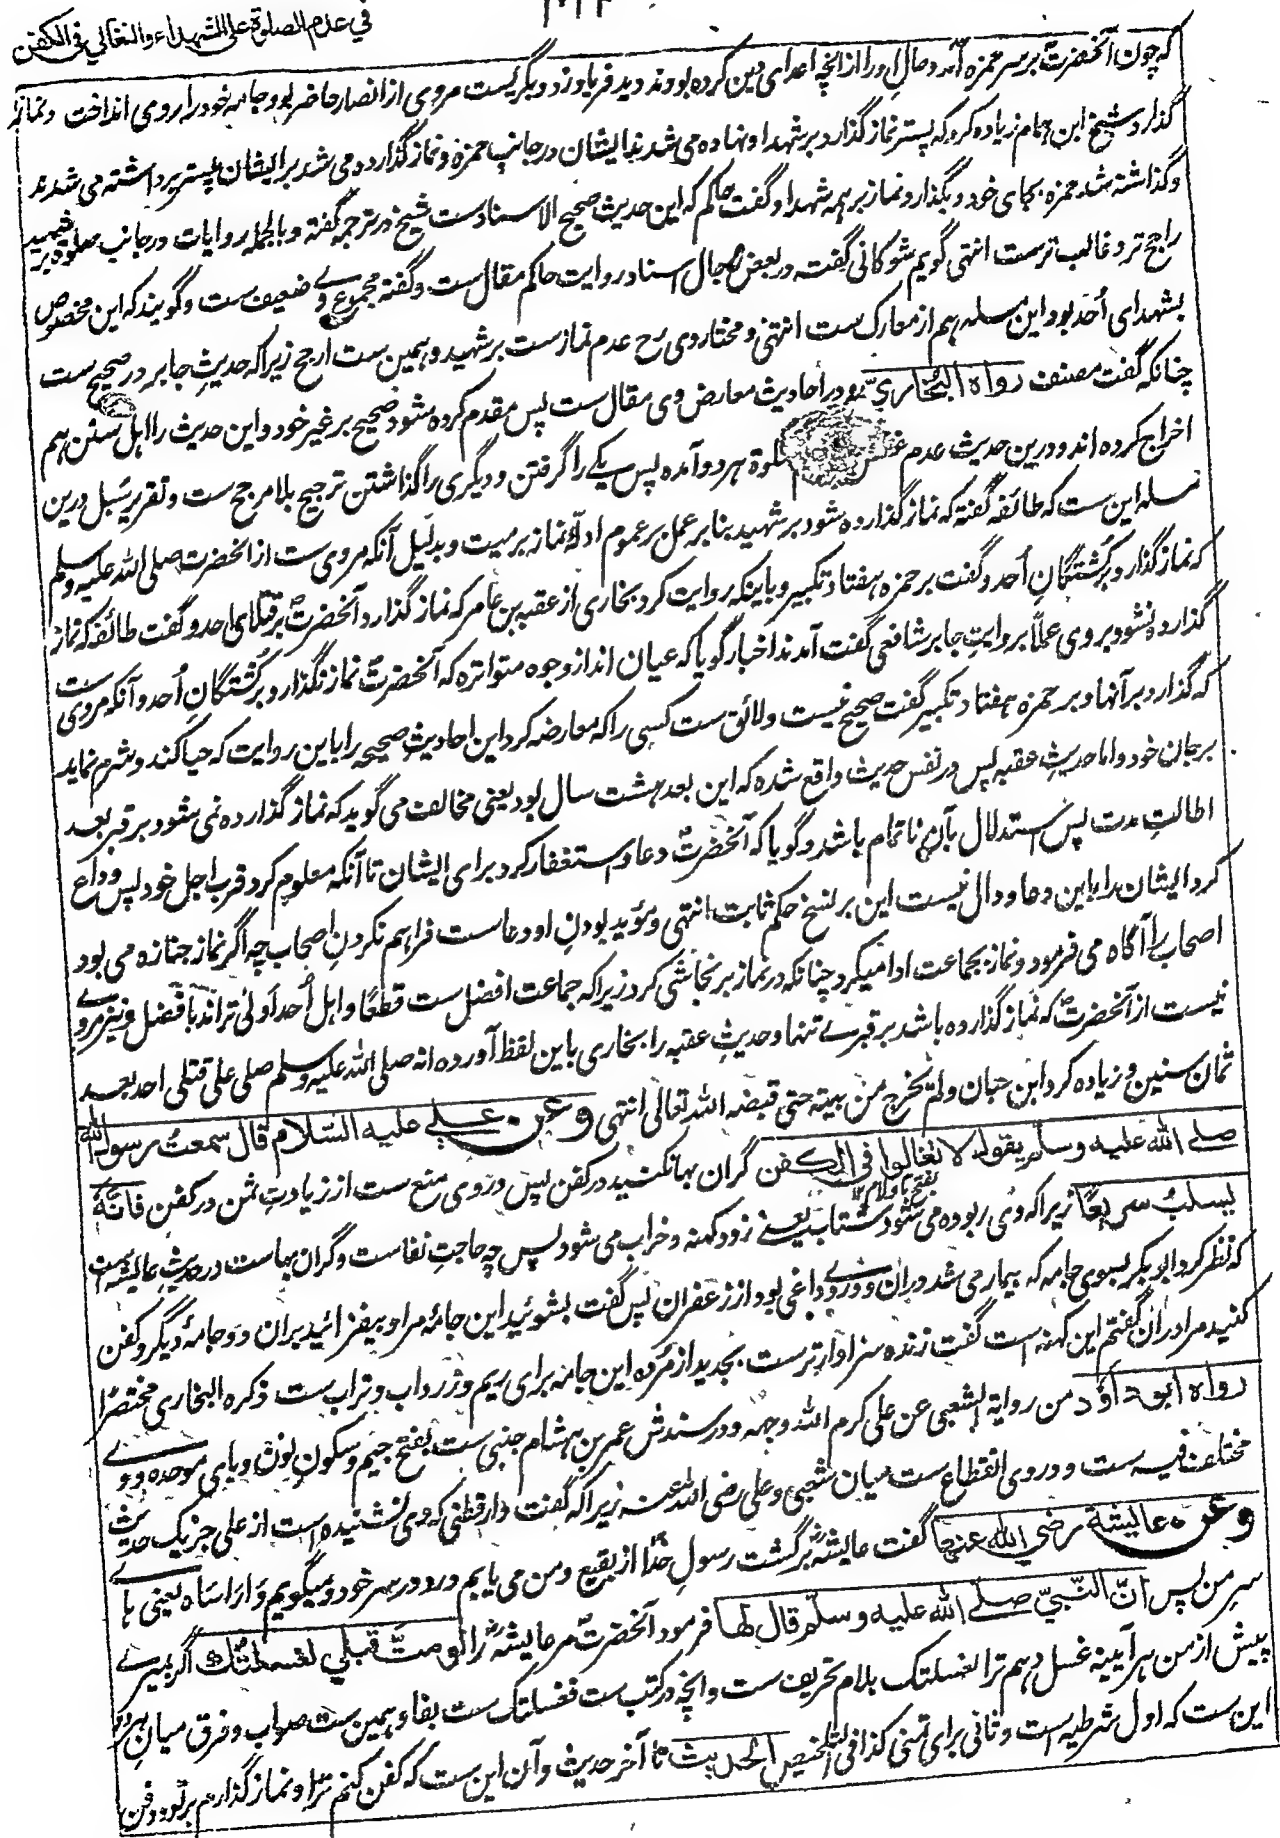 في عدم الصلوة على الشهداء والتغالي في الكفن
که چون آنحضرت بر سر حمزه آمد و حال او را از آنچه اعدای دین کرده بودند دید فریاد زد و بگریست مردی از انصار حاضر بود جامه خود را بروی انداخت و نماز
گذارد شیخ ابن همام زیاده کرد که پستر نماز گذارد بر شهدا و نهاده می شدند ایشان در جانب حمزه و نماز گذارده می شد بر ایشان پستر برداشته می شدند
و گذاشته شد حمزه بجای خود و بگذارد نماز بر همه شهدا و گفت حاکم که این حدیث صحیح الاسنادست شیخ در ترجمه گفته و بالجمله روایات در جانب صلوة بر شهید
راجح تر و غالب ترست انتهی گویم شوکانی گفته در بعض رجال اسناد روایت حاکم مقال ست و گفته مجموع وی ضعیف ست و گویند که این مخصوص
بشهدای اُحد بود و این مسله هم از معارک ست انتهی و مختار وی رح عدم نمازست بر شهید و همین ست ارجح زیرا که حدیثِ جابر در صحیح ست
چنانکه گفت مصنف رواه البخاري و در احادیث معارض وی مقال ست پس مقدم کرده شود صحیح بر غیر خود و این حدیث را اهل سنن هم
اخراج کرده اند و درین حدیث عدم صلوة هر دو آمده پس یکی را گرفتن و دیگری را گذاشتن ترجیح بلا مرجح ست و تقریر سبل درین
مسله این ست که طائفه گفته که نماز گذارده شود بر شهید بنا بر عمل بر عموم ادلۀ نماز بر میت و بدلیل آنکه مروی ست از آنحضرت صلی الله علیه وسلم
که نماز گذارد بر کشتگانِ اُحد و گفت بر حمزه هفتاد تکبیر و باینکه روایت کرد بخاری از عقبه بن عامر که نماز گذارد آنحضرت بر قتلای احد و گفت طائفه که نماز
گذارده نشود بر وی عملا بروایتِ جابر شافعی گفت آمدند اخبار گویا که عیان اند از وجوه متواتره که آنحضرت نماز نگذارد بر کشتگانِ اُحد و آنکه مروی ست
که گذارد بر آنها و بر حمزه هفتاد تکبیر گفت صحیح نیست و لائق ست کسی را که معارضه کرد این احادیثِ صحیحه را باین روایت که حیا کند و شرم نماید
بر جان خود و اما حدیثِ عقبه پس در نفس حدیث واقع شده که این بعد هشت سال بود یعنی مخالف می گوید که نماز گذارده نمی شود بر قبر بعد
اطالتِ مدت پس استدلال بآن ناتمام باشد و گویا که آنحضرت دعا و استغفار کرد برای ایشان تا آنکه معلوم کرد قرب اجل خود پس وداع
کرد ایشان را باین دعا و دال نیست این بر نسخ حکم ثابت انتهی و مؤید بودنِ او دعاست فراهم نکردنِ اصحاب چه اگر نماز جنازه می بود
اصحاب را آگاه می فرمود و نماز بجماعت ادا میکرد چنانکه در نماز بر نجاشی کرد زیرا که جماعت افضل ست قطعا و اهل اُحد اولی تراند بافضل و نیز مروی
نیست از آنحضرت که نماز گذارده باشد بر قبرے تنها و حدیثِ عقبه را بخاری باین لفظ آورده انه صلی الله علیه وسلم صلی علی قتلی احد بعد
ثمان سنین و زیاده کرد ابن حبان و لم یخرج من بیته حتی قبضه الله تعالی انتهی وعن علي عليه السلام قال سمعت رسول الله
صلى الله عليه وسلم يقول لا تغالوا في الكفن گران بها نکنید در کفن پس در وی منع ست از زیادتِ ثمن در کفن فانه
يسلب سريعا زیرا که وی ربوده می شود بشتاب یعنے زود کهنه و خراب می شود پس چه حاجتِ نفاست و گران بهاست در حدیثِ عائشه است
که نظر کرد ابو بکر بسوی جامه که بیمار می شد در ان و دروے داغی بود از زعفران پس گفت بشوئید این جامۀ مرا و بیفزائید بران دو جامۀ دیگر و کفن
کنید مرا دران گفتم این کهنه است گفت زنده سزاوارترست بجدید از مرده این جامه برای ریم و زرداب و تراب ست ذکره البخاری مختصرا
رواه ابو داؤد من روایة الشعبی عن علی کرم الله وجهه و در سندش عمر بن هشام جنبی ست بفتح جیم و سکونِ نون و بای موحده ووے
مختلف فیه ست و در وی انقطاع ست میان شعبی و علی رضی الله عنه زیرا که گفت دارقطنی که وی نشنیده است از علی جز یک حدیث
وعن عايشة رضي الله عنها گفت عایشه برگشت رسول خدا از بقیع و من می یابم درد در سر خود و میگویم وا راساه یعنی ہاے
سر من پس انّ النبيّ صلے الله عليه وسلم قال لها فرمود آنحضرت مر عایشه را لو متِّ قبلي لغسلتك اگر بمیرے
پیش از من هر آیینه غسل دهم ترا لغسلتک بلام تحریف ست و آنچه در کتب ست فغسلتک ست بفا و همین ست صواب و فرق میان هر دو
این ست که اول شرطیه است و ثانی برای تمنی کذا فی التلخیص الحدیث تا آخر حدیث و آن این ست که کفن کنم ترا و نماز گذارم بر تو و دفن